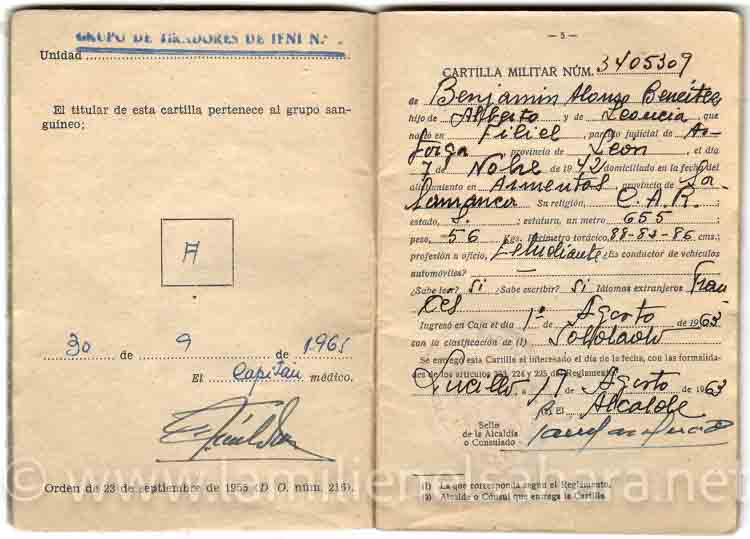 GRUPO DE TIRADORES DE IFNI N.º
Unidad
El titular de esta cartilla pertenece al grupo san-
guíneo;
A
30 de 9 de 1965
El Capitan médico.
Orden de 23 de septiembre de 1955 (D O. núm. 216).
— 5 —
CARTILLA MILITAR NÚM. 3405309
de Benjamin Alonso Benéitez
hijo de Alberto y de Leoncia, que
nació en Filiel, partido judicial de As-
torga provincia de Leon, el día
7 de Nobre de 1942 domiciliado en la fecha del
alistamiento en Armentos, provincia de Sa-
lamanca Su religión, C.A.R.;
estado, S.; estatura, un metro 655;
peso, 56 Kgs. Perímetro torácico, 88-83-86 cms.;
profesión u oficio, Estudiante ¿Es conductor de vehículos
automóviles? —
¿Sabe leer? si ¿Sabe escribir? si Idiomas extranjeros Fran
ces
Ingresó en Caja el día 1º Agosto de 1963
con la clasificación de (1) Soldado
Se entregó esta Cartilla al interesado el día de la fecha, con las formalida-
des de los artículos 223, 224 y 225 del Reglamento.
Lucillo a 19 Agosto de 1963
(2) El Alcalde
Sello
de la Alcaldía
o Consulado
(1) La que corresponda según el Reglamento.
(2) Alcalde o Cónsul que entrega la Cartilla.
© www.lamilienelsahara.net